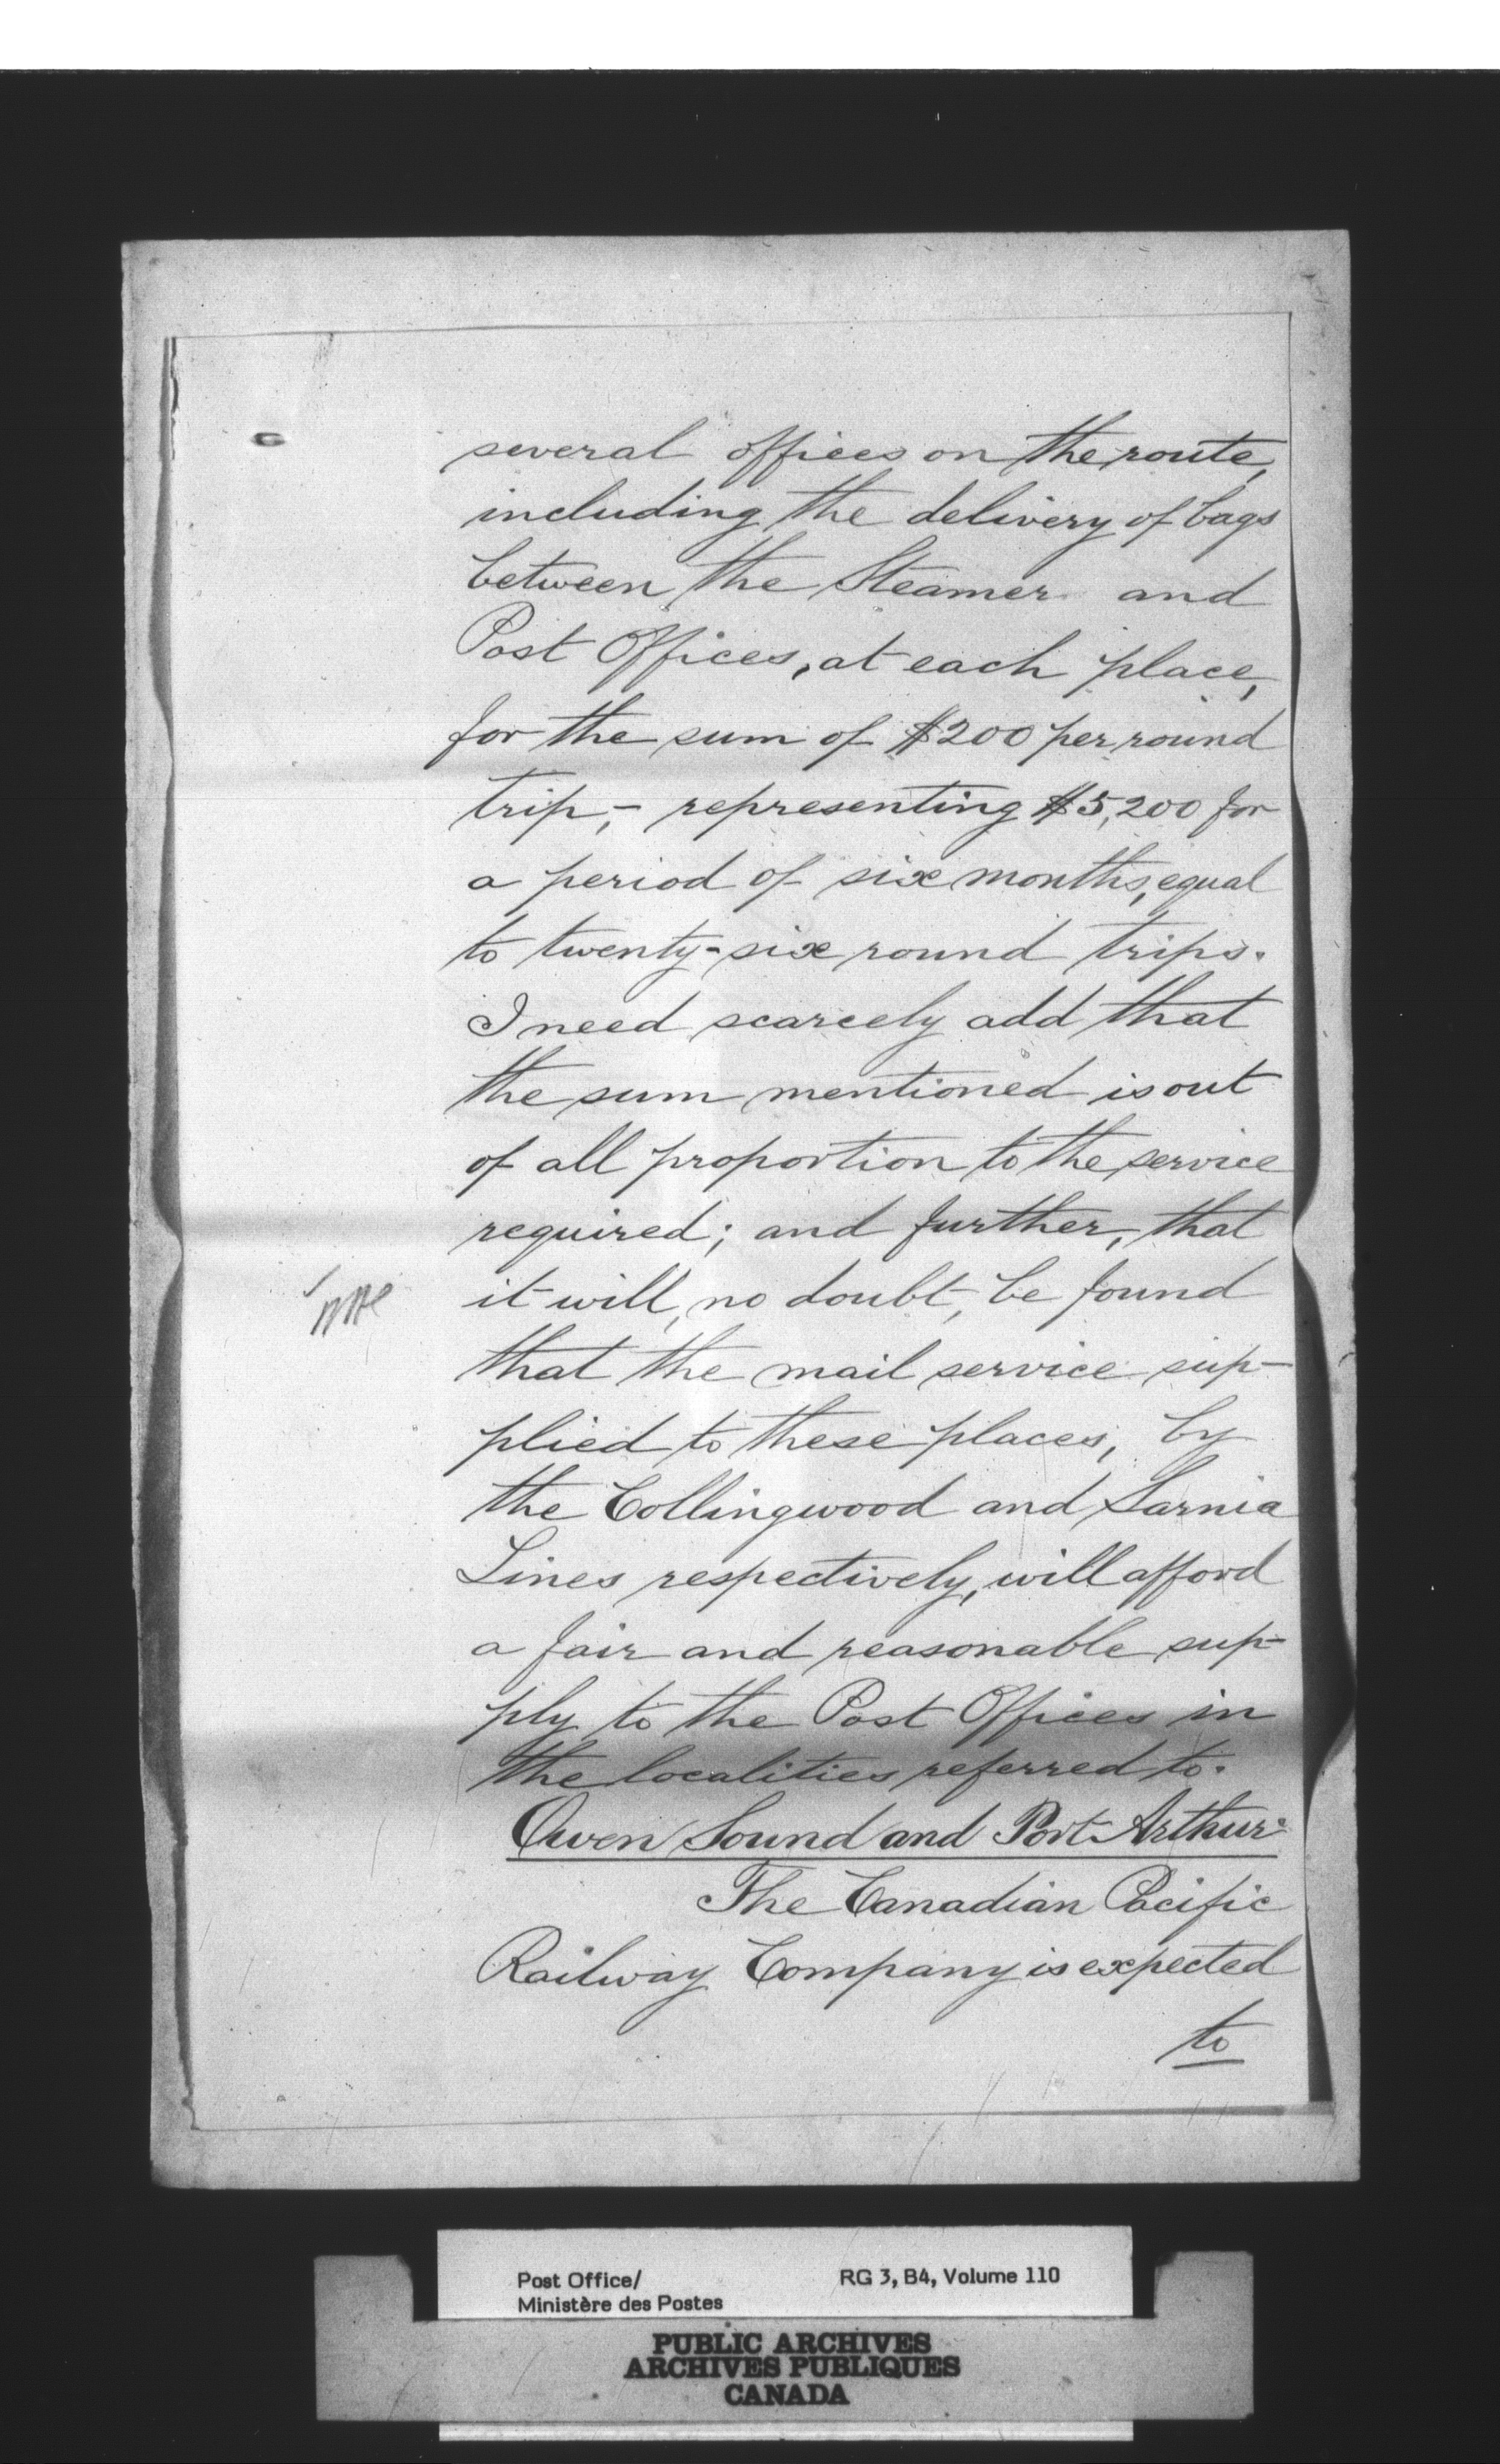 several offices on the route,
including the delivery of bags
between the Steamer and
Post Offices, at each place,
for the sum of $200 per round
trip,- representing $5,200 for
a period of six months, equal
to twenty-six round trips.
I need scarcely add that
the sum mentioned is out
of all proportion to the service
required; and further, that
it will, no doubt, be found
that the mail service sup-
plied to these places, by
the Collingwood and Sarnia
Lines respectively, will afford
a fair and reasonable sup-
ply to the Post Offices in
the localities referred to.
Owen Sound and Port Arthur.
The Canadian Pacific
Railway Company is expected
to
Post Office/
Ministère des Postes
RG 3, B4, Volume 110
PUBLIC ARCHIVES
ARCHIVES PUBLIQUES
CANADA